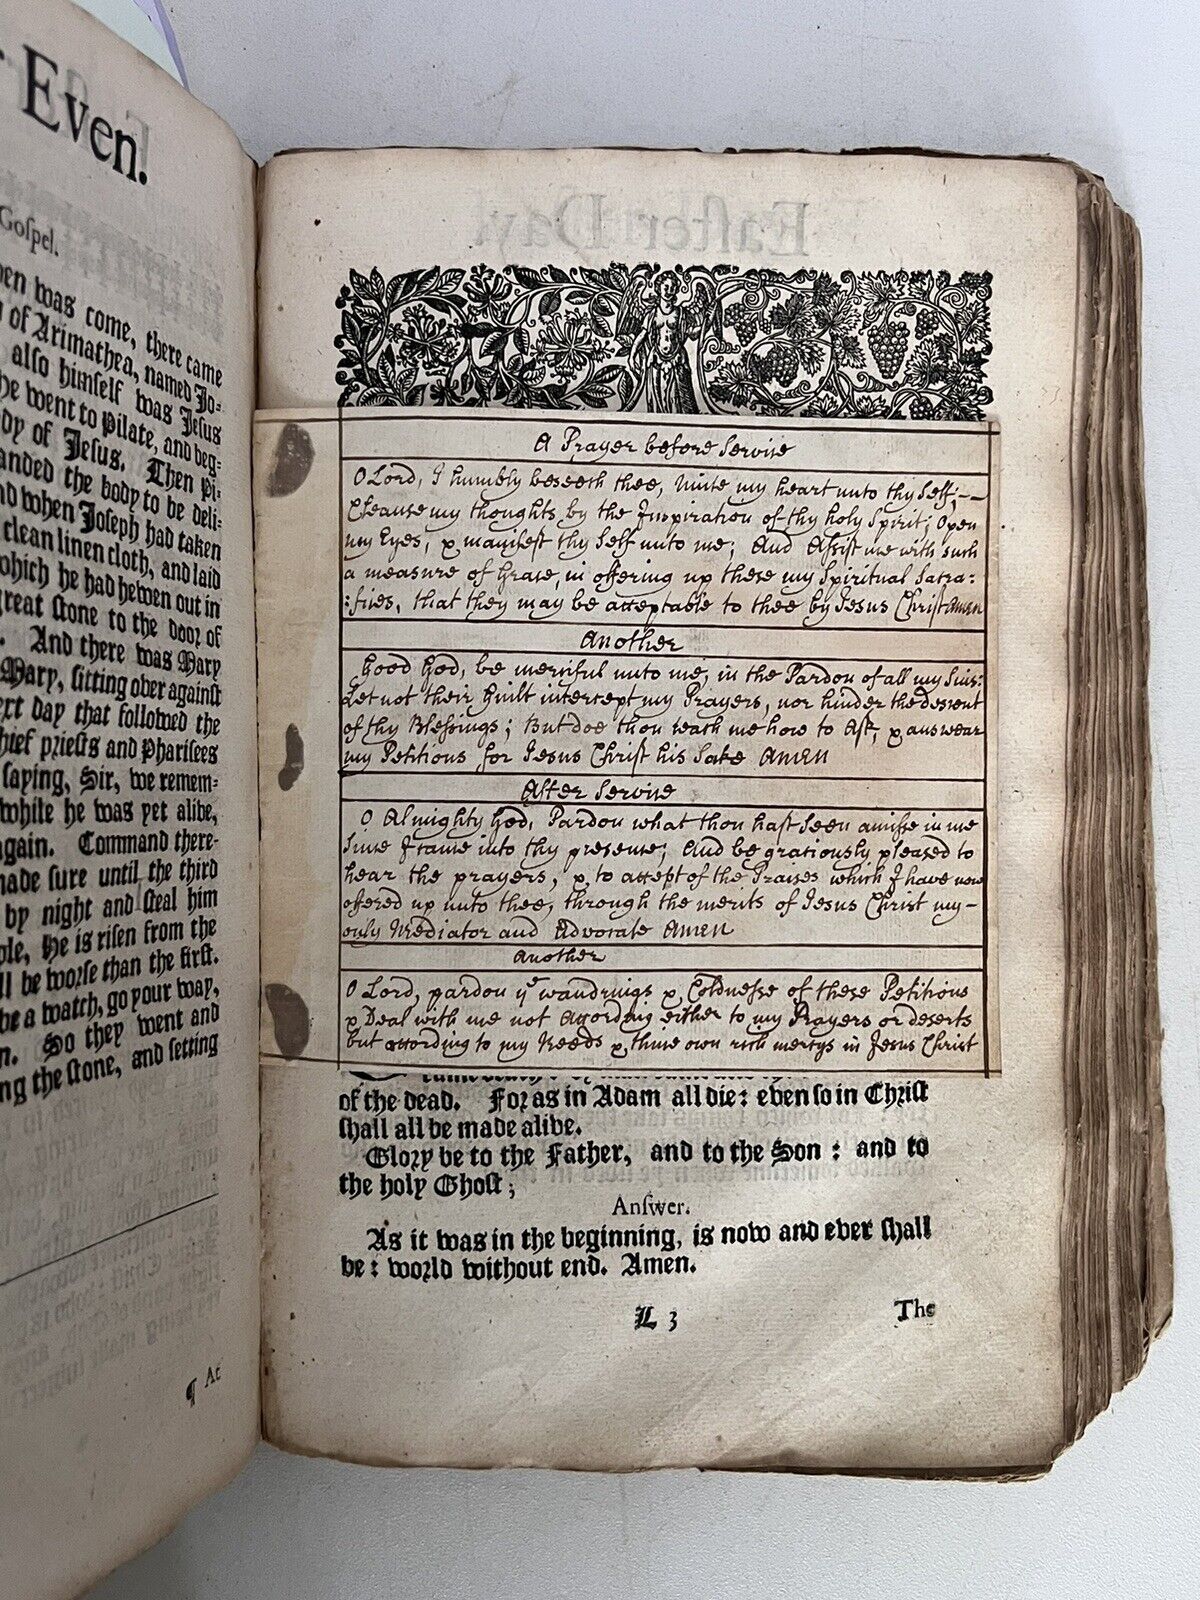 Even.
Goſpel.
hen was come, there came
of Arimathea, named Jo-
also himself was Jesus
he went to Pilate, and beg-
body of Jesus. Then Pi-
manded the body to be deli-
And when Joseph had taken
clean linen cloth, and laid
which he had hewen out in
great ſtone to the door of
And there was Mary
Mary, ſitting over againſt
next day that followed the
chief prieſts and Phariſees
ſaying, Sir, we remem-
while he was yet alive,
again. Command there-
made ſure until the third
by night and ſteal him
people, He is riſen from the
shall be worſe than the firſt.
be a watch, go your way,
So they went and
ing the ſtone, and ſetting
¶ At
Eaſter Day.
A Prayer before Servise
O Lord, I humbly beseech thee, Unite my heart unto thy self;--
Cleause my thoughts by the Inspiration of thy holy Spirit; Open
my Eyes, & manifest thy self unto me; And Assist me with such
a measure of Grace, in offering up these my Spiritual Sacra:
:fices, that they may be acceptable to thee by Jesus Christ Amen
Another
Good God, be merciful unto me, in the Pardon of all my Sins:
Let not their Guilt intercept my Prayers, nor hinder the descent
of thy Blessings; But doe thou teach me how to Ask, & answear
my Petitions for Jesus Christ his Sake Amen
After Servise
O Almighty God, Pardon what thou hast seen amisse in me
Since I came into thy presense; And be graciously pleased to
hear the prayers, & to accept of the Praises which I have now
offered up unto thee, through the merits of Jesus Christ my-
only Mediator and Advocate Amen
Another
O Lord, pardon yᵉ wandrings & Coldnesse of these Petitions
& Deal with me not According either to my Prayers or deserts
but according to my Needs & thine own rich mercys in Jesus Christ
of the dead. For as in Adam all die: even ſo in Chriſt
ſhall all be made alive.
Glory be to the Father, and to the Son: and to
the holy Ghoſt;
Anſwer.
As it was in the beginning, is now and ever ſhall
be: world without end. Amen.
L 3
The